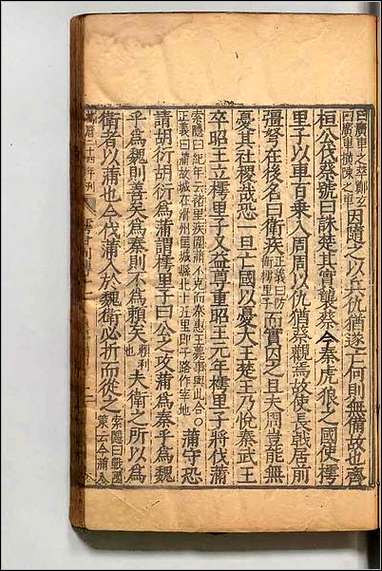 曰廣車之萃鄭玄
曰廣車横陳之車因隨之以兵仇猶遂亡何則無備故也齊
桓公伐蔡號曰誅楚其實襲蔡今秦虎狼之國使樗
里子以車百乗入周周以仇猶蔡觀焉故使長戟居前
彊弩在後名曰衛疾正義曰防衛樗里子而實囚之且夫周豈能無
憂其社稷哉恐一旦亡國以憂大王楚王乃悅秦武王
卒昭王立樗里子又益尊重昭王元年樗里子將伐蒲
索隱曰紀年云褚里疾圍蒲不克而秦惠王薨事與此合〇
正義曰蒲故城在滑州匡城縣北十五里即子路作宰地蒲守恐
請胡衍胡衍爲蒲謂樗里子曰公之攻蒲爲秦乎爲魏
乎爲魏則善矣爲秦則不爲頼矣頼利也夫衛之所以爲
衛者以蒲也今伐蒲入於魏衛必折而從之索隱曰戰國策云今蒲入